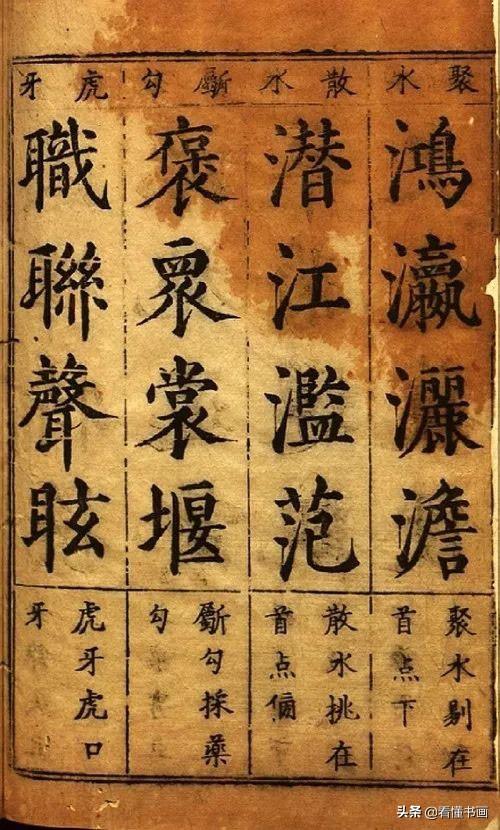 聚水
鴻瀛灑澹
聚水剔在
首点下
散水
潜江濫范
散水挑在
首点
斸勾
褒裳堰
斸勾採藥
勾
虎牙
職聯聲眩
虎牙虎口
牙
头条 @看懂书画